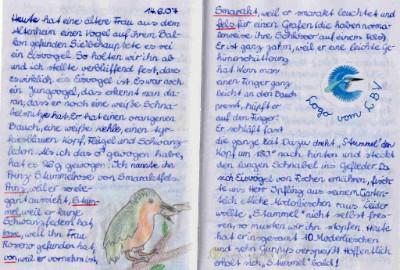 14.6.07
Heute hat eine ältere Frau aus dem
Altenheim einen Vogel auf ihrem Bal-
kon gefunden. Sie behauptete es sei
ein Eisvogel. So holten wir ihn ab
und ich stellte verblüffend fest, dass
es wirklich ein Eisvogel ist. Es war noch
ein Jungvogel, das erkennt man da-
ran, dass er noch eine weiße Schna-
belspitze hat. Er hat einen orangenen
Bauch, eine weiße Kehle, einen tür-
kisblauen Kopf, Flügel und Schwanz-
federn. Als ich das gewogen habe,
hat es 28 g gewogen. Ich nannte ihn
Prinz Stummelrose von Smaragdfels.
Prinz, weil er so ele-
gant aussieht, Stum-
mel, weil er kurze
Schwanzfedern hat,
rose, weil ihn Frau
gefunden hat,
von, weil er vornehm ist,
Smaragd, weil er smaragd leuchtet und
fels für einen Grafen (die haben norma-
lerweise ihre Schlösser auf einem Fels).
Er ist ganz zahm, weil er eine leichte Ge-
hirnerschütterung
hat. Wenn man
einen Finger ganz
leicht an den Bauch
presst, hüpft er
auf den Finger.
Er schläft fast
die ganze Zeit. Dazu dreht „Stummel" den
Kopf um 180° nach hinten und steckt
den langen Schnabel ins Gefieder. Da
sich Eisvögel von Fischen ernähren, fisch-
te uns Herr aus seinem Garten-
teich etliche Moderlieschen raus. Leider
wollte „Stummel" nicht selbst fres-
sen, so mussten wir ihn stopfen. Heute
hat er insgesamt 10 Moderlieschen
und zehn Guppys verspeist. Hoffentlich
erholt sich „Stummel" bald!
Logo vom LBV